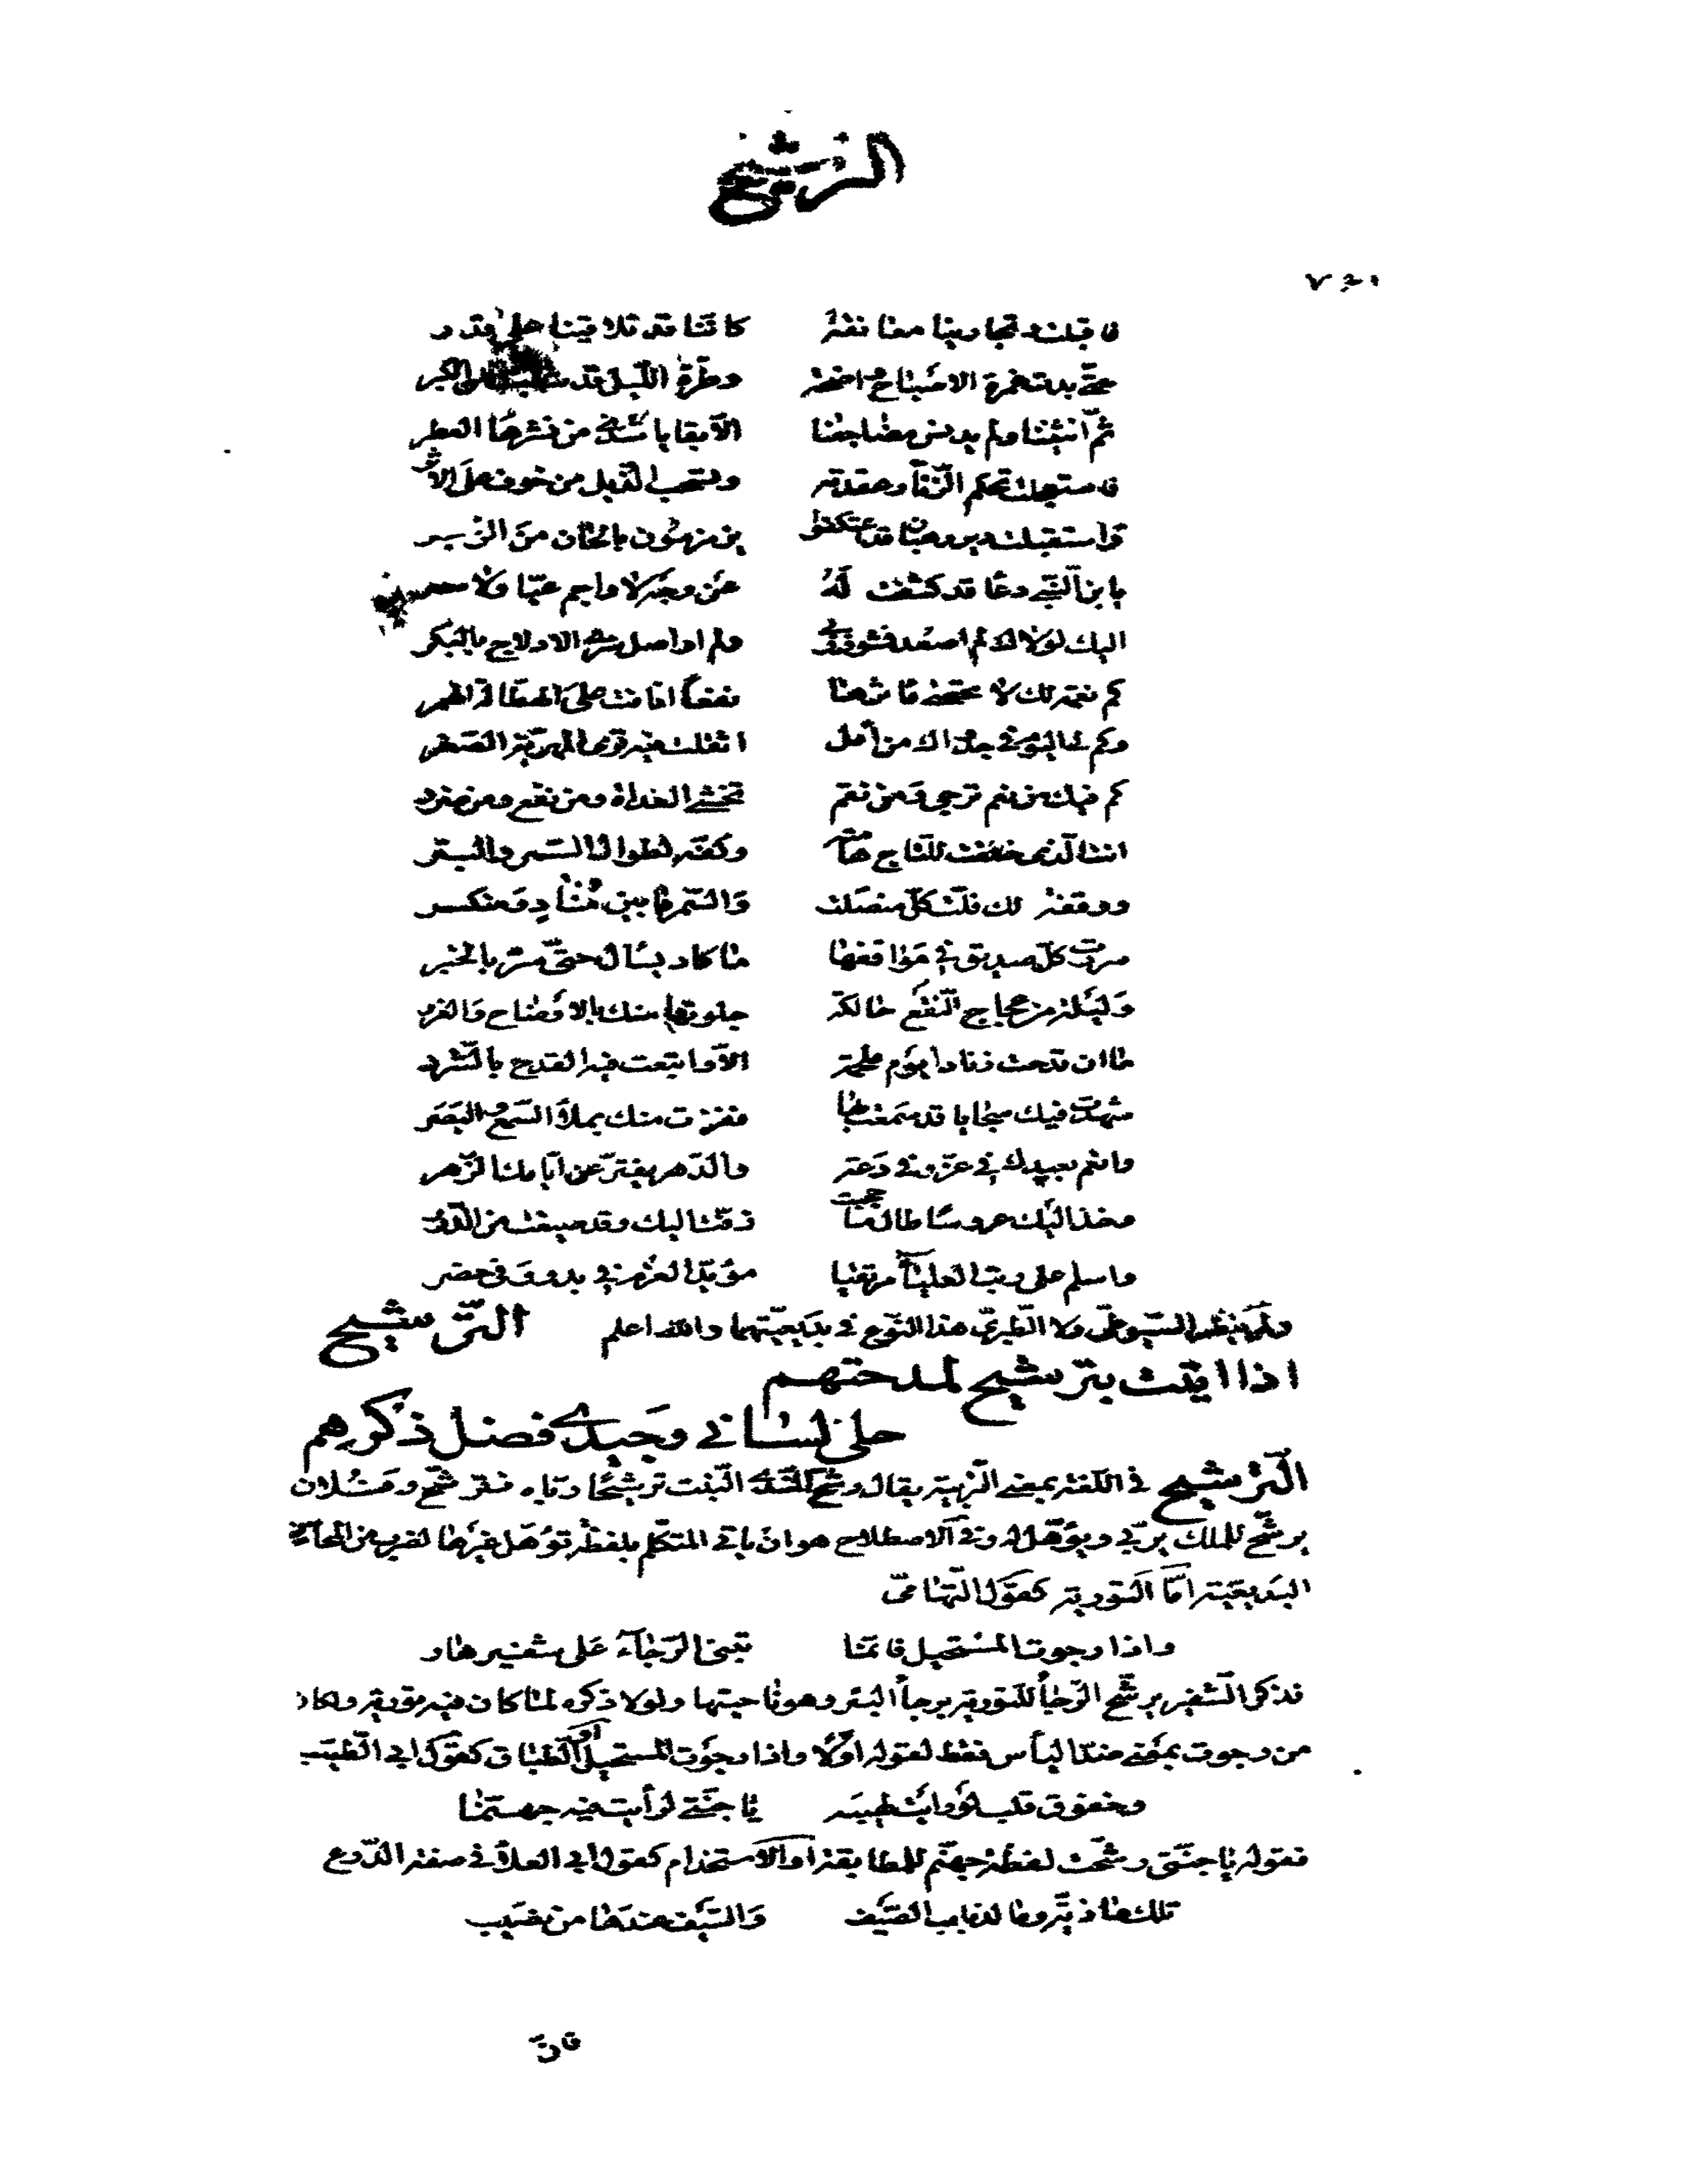 الترشيح
فاقبلت وتجارينا معا نفثت كاننا قد تلاقينا على قدر
حتى بدت غمرة الاصباح واضحة وطرة الليل قد شابت الكبر
ثم انثنينا ولم يدنس مضاجعنا الا بقايا شذى من نشرها العطر
فاستعجلت تحكم وعقدته وتسحب الذيل من خوف على الاثر
واستقبلت دير رهبان قد اعتكفوا يزمزمون بالحان من الزبر
يا ابن النبي دعا قد كشفت له عن وجه لا واجم عيا ولا حصر
اليك لولاك لم اصعد ولم اواصل الادلاج بالبكر
كم نعمة لك لا تحصى
وكم لها اليوم في جدواك من أمل اثقلت
كم فيك من نعم ترجى ومن نقم تخشى العداة ومن نفع ومن ضرر
انت الذى خلقت للتاج هامته وكفه لطوال السمر والبتر
ووقفة لك فلت كل منصلت والسمر ما بين مناد ومنكسر
سرت كل صديق في مواقفها ما كاد يسأل حتى سر بالخبر
وليلة من عجاج النقع حالكة جلوتها منك بالاوضاح والغرر
ما ان قدحت زنادا يوم ملحمة الا واتبعت فيه القدح بالشرر
شهدت فيك سجايا قد سمعت بها ففزت منك بملأ السمع والبصر
وانعم بعيدك في عز وفي دعة والدهر يفتر عن ايامك الزهر
وخذ اليك عروسا طالما حجبت زفت اليك وقد صيغت من الدرر
واسلم على رتب العلياء مرتقيا مؤيد العزم في بدو وفي حضر
ولم ينظم السيوطي ولا الطبري هذا النوع في بديعيتهما والله اعلم الترشيح
اذا اتيت بترشيح لمدحتهم
حلى لساني وجيدى فضل ذكرهم
الترشيح في اللغة بمعنى التربية يقال رشح النبت ترشيحا رباه فترشح وفلان
يرشح للملك يربي ويؤهل له وفي الاصطلاح هو ان يأتي المتكلم بلفظة تؤهل غيرها لضرب من المحاسن
البديعية اما التورية كقول التهامى
واذا رجوت المستحيل فانما تبنى الرجاء على شفير هار
فذكر الشفير يرشح الرجاء للتورية برجاء البئر وهو ناحيتها ولولا ذكره لما كان فيه تورية ولكان
من رجوت بمعنى ضد اليأس فقط لقوله اولا واذا رجوت المستحيل او الطباق كقول ابي الطيب
وخفوق قلب لو رأيت لهيبه يا جنتي لرأيت فيه جهنما
فقوله يا جنتى رشحت لفظة جهنم للمطابقة او الاستخدام كقول ابي العلا في صفة الدرع
تلك ماذية وما لذباب الصيف والسيف عندها من نصيب
فان